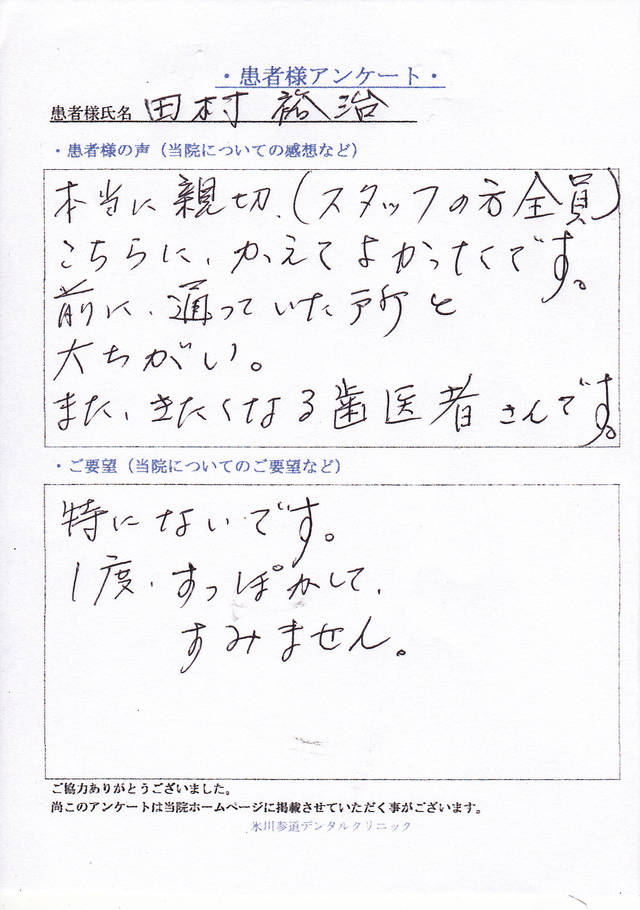 ・患者様アンケート・
患者様氏名 田村 裕治
・患者様の声（当院についての感想など）
本当に親切、(スタッフの方全員)
こちらに、かえてよかったくです。
前に、通っていた所と
大ちがい。
また、きたくなる歯医者さんです。
・ご要望（当院についてのご要望など）
特にないです。
1度、すっぽかして、
すみません。
ご協力ありがとうございました。
尚このアンケートは当院ホームページに掲載させていただく事がございます。
氷川参道デンタルクリニック